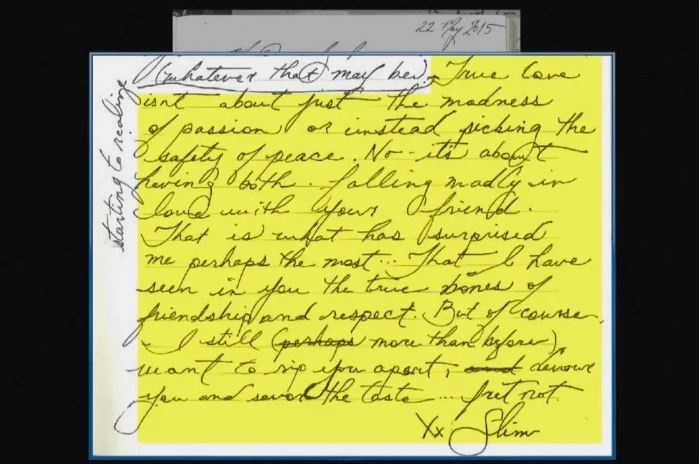 22 May 2015
(whatever that may be). True love
isnt about just the madness
of passion or instead picking the
safety of peace. No - it's about
having both. falling madly in
love with your friend.
That is what has surprised
me perhaps the most... That I have
seen in you the true bones of
friendship and respect. But of course,
I still (perhaps more than before)
want to rip you apart, and devour
you and savor the taste ... fret not.
Xx Slim
starting to realize